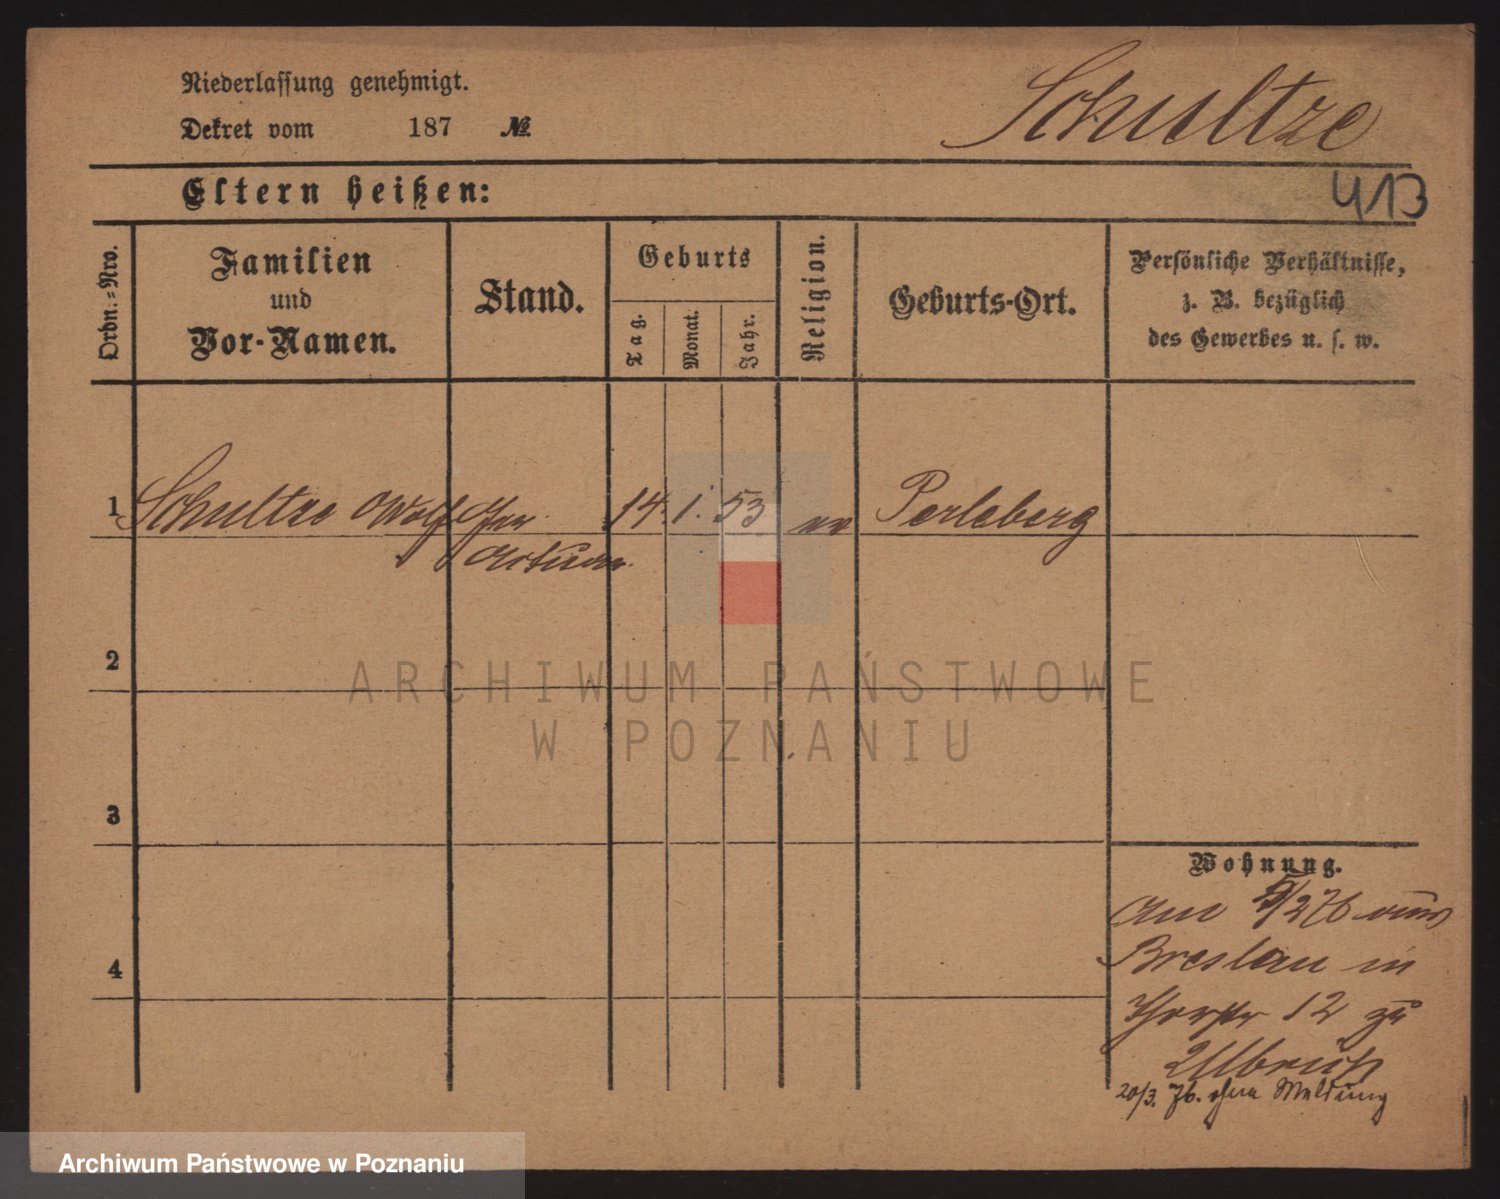 Niederlassung genehmigt.
Dekret vom 187 №
Schultze
Eltern heißen:
413
Ordn.=Nro.
Familien
und
Vor-Namen.
Stand.
Geburts
Tag.
Monat.
Jahr.
Religion.
Geburts-Ort.
Persönliche Verhältnisse,
z. B. bezüglich
des Gewerbes u. s. w.
1 Schultze 14. 1. 53 ev Perleberg
2
ARCHIWUM PAŃSTWOWE
W POZNANIU
3
Wohnung.
am 5/2 76 aus
4
Breslau in
12 zu
20/3. 76. ohne Meldung
Archiwum Państwowe w Poznaniu